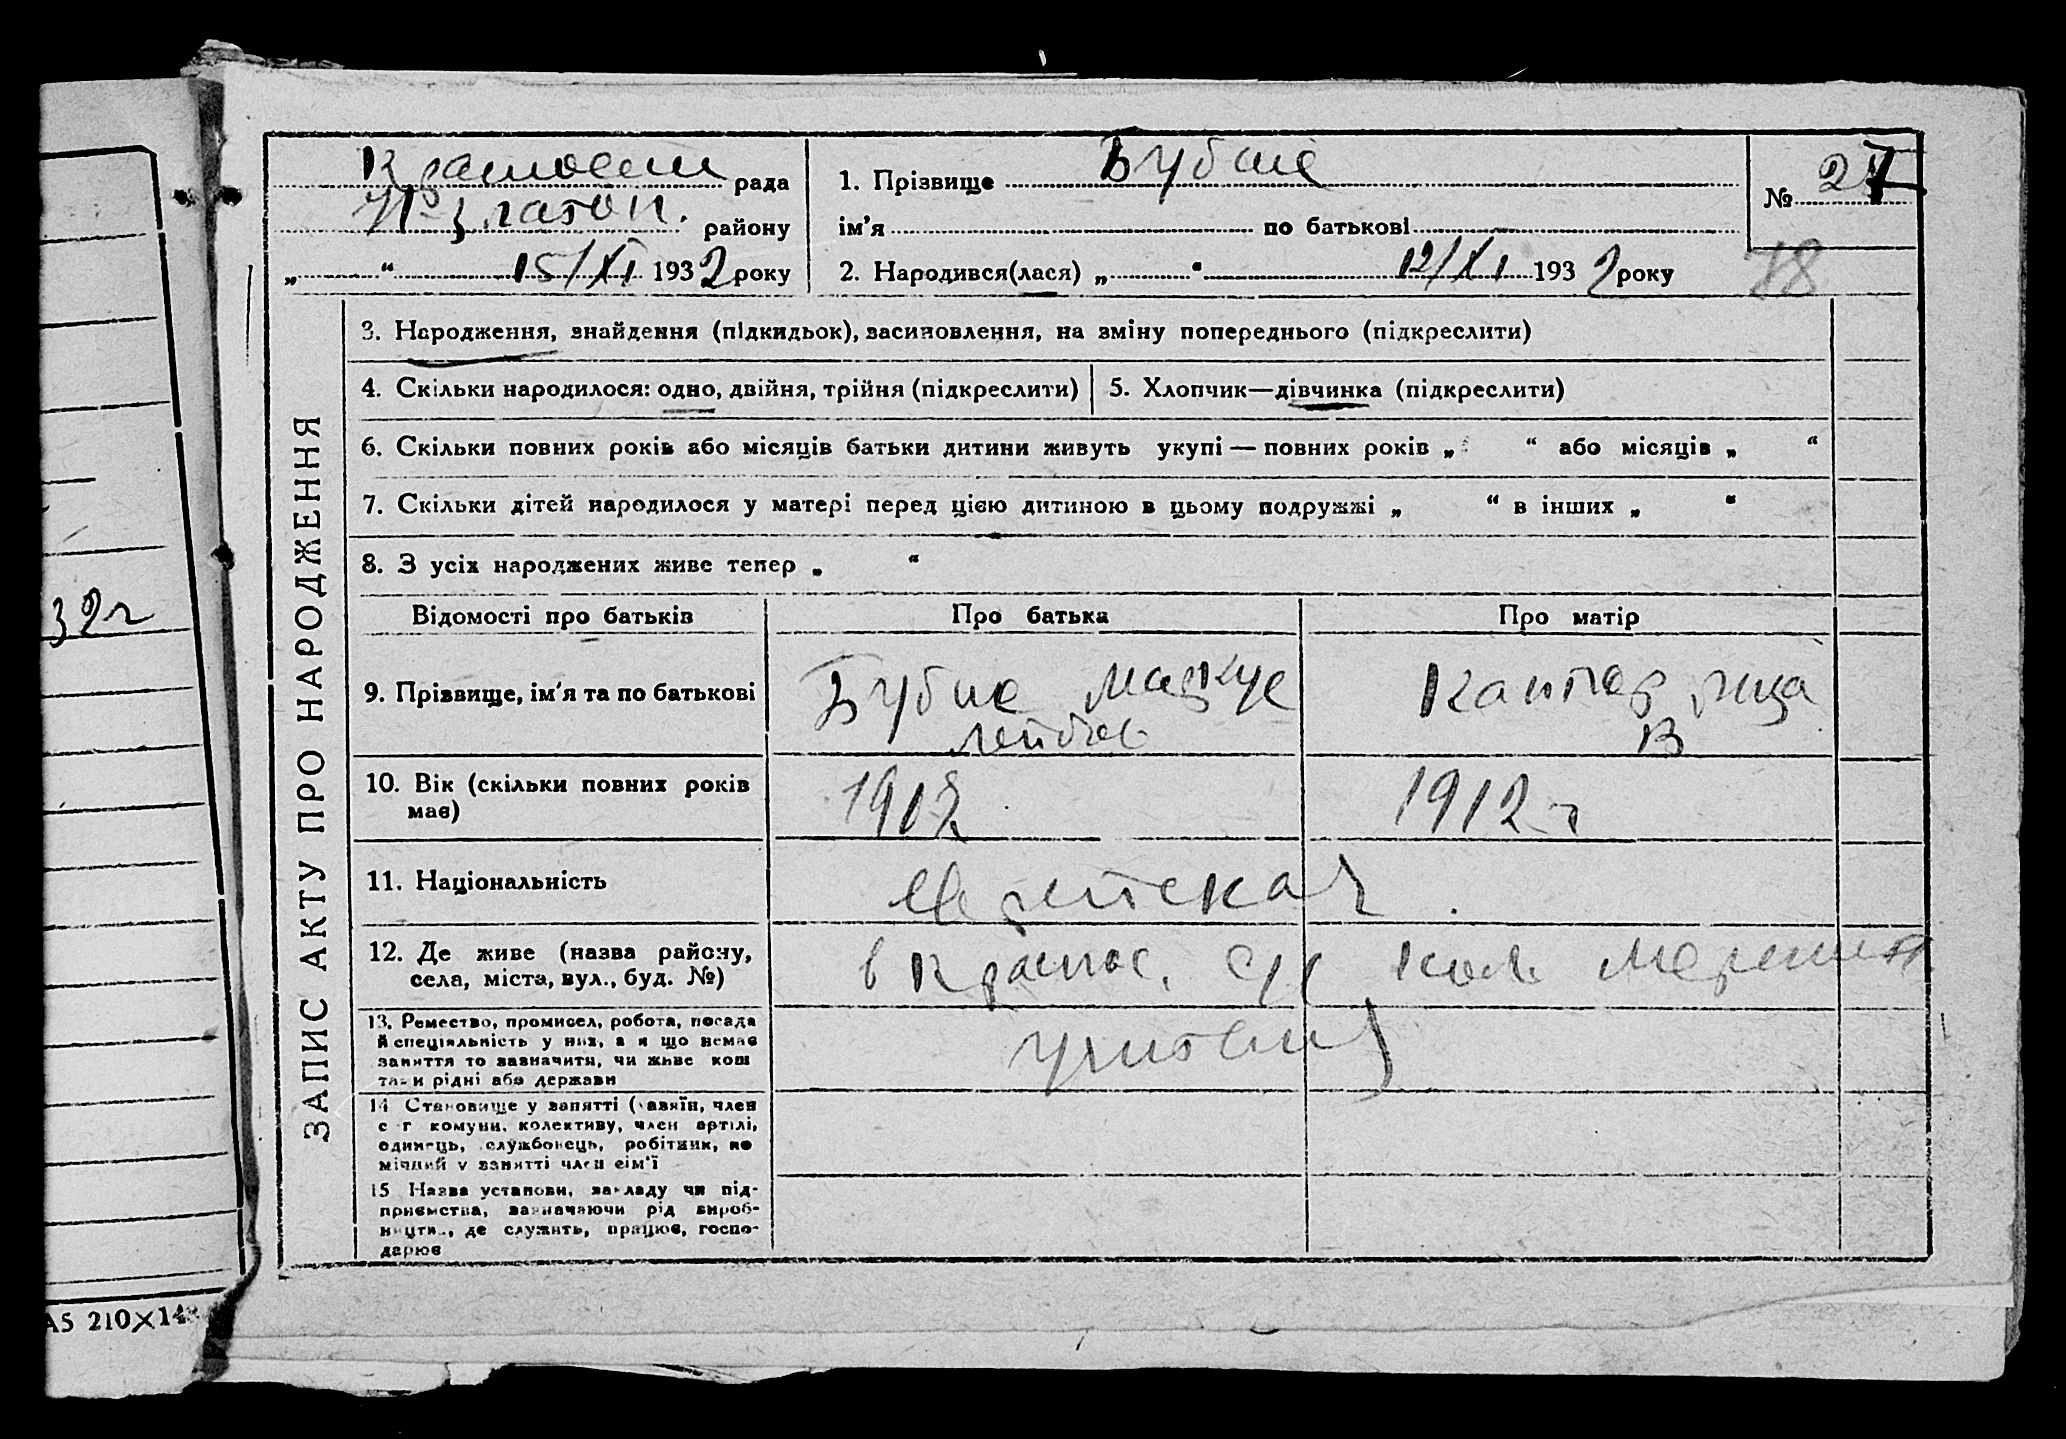 Красносели рада
Н-Златоп. району
„ “ 15/XI 1932 року
1. Прізвище Бубис
ім’я по батькові
2. Народився(лася) „ “ 12/XI 1932 року
№ 27
78
ЗАПИС АКТУ ПРО НАРОДЖЕННЯ
3. Народження, знайдення (підкидьок), засиновлення, на зміну попереднього (підкреслити)
4. Скільки народилося: одно, двійня, трійня (підкреслити)
5. Хлопчик—дівчинка (підкреслити)
6. Скільки повних років або місяців батьки дитини живуть укупі — повних років „ “ або місяців „ “
7. Скільки дітей народилося у матері перед цією дитиною в цьому подружжі „ “ в інших „ “
8. З усіх народжених живе тепер „ “
Відомості про батьків Про батька Про матір
9. Прізвище, ім’я та по батькові
Бубис Маркус
Лейбов
Кантор
В
10. Вік (скільки повних років
має)
1912 г
11. Національність
Еврейская
12. Де живе (назва району,
села, міста, вул., буд. №)
в Краснос.
13. Ремество, промисел, робота, посада
й спеціяльність у них, а я що немає
заняття то зазначити, чи живе кош
тами рідні або держави
14 Становище у занятті (хазяїн, член
с-г комуни, колективу, член артілі,
одинець, службовець, робітник, по
мічний у занятті член сім’ї
15 Назва установи, закладу чи під-
приємства, зазначаючи рід вироб-
ництва, де служить, працює, госпо-
дарює
32г
А5 210×148